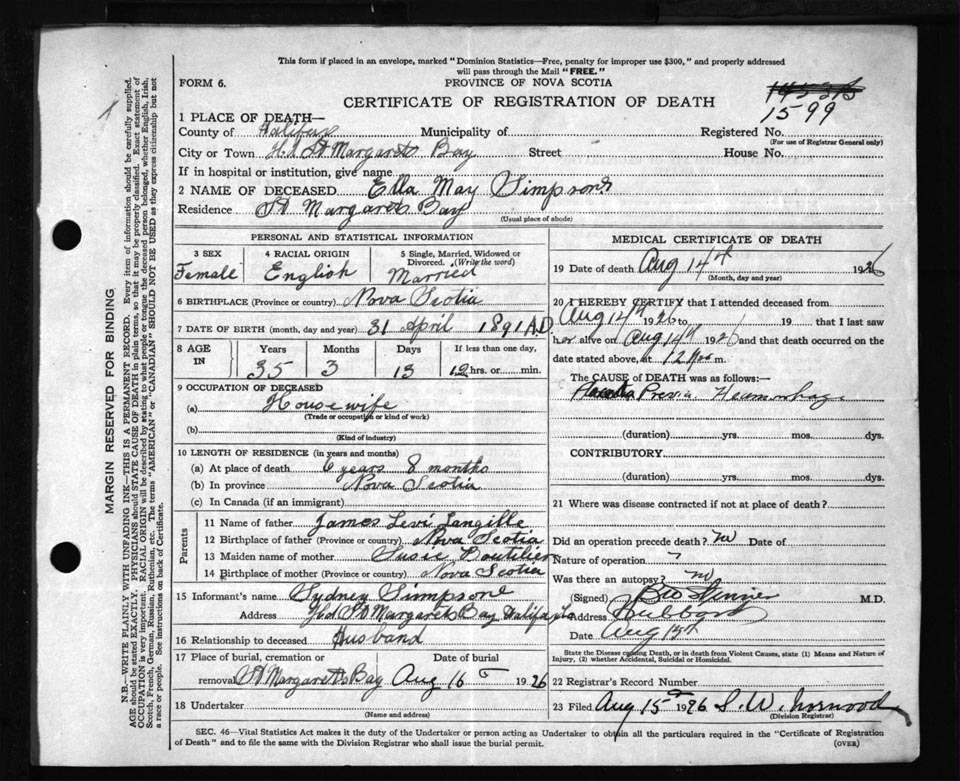 This form if placed in an envelope, marked "Dominion Statistics—Free, penalty for improper use $300," and properly addressed
will pass through the Mail "FREE."
FORM 6.
PROVINCE OF NOVA SCOTIA
CERTIFICATE OF REGISTRATION OF DEATH
1599
1 PLACE OF DEATH—
County of Halifax Municipality of Registered No.
(For use of Registrar General only)
City or Town St Margarets Bay Street House No.
If in hospital or institution, give name
2 NAME OF DECEASED Ella May Simpson
Residence St Margarets Bay
(Usual place of abode)
PERSONAL AND STATISTICAL INFORMATION
3 SEX
Female
4 RACIAL ORIGIN
English
5 Single, Married, Widowed or
Divorced. (Write the word)
Married
6 BIRTHPLACE (Province or country) Nova Scotia
7 DATE OF BIRTH (month, day and year) 31 April 1891 A.D.
8 AGE IN
Years Months Days If less than one day,
35 3 13 12 hrs. or min.
9 OCCUPATION OF DECEASED
(a) House wife
(Trade or occupation or kind of work)
(b)
(Kind of industry)
10 LENGTH OF RESIDENCE (in years and months)
(a) At place of death 6 years 8 months
(b) In province Nova Scotia
(c) In Canada (if an immigrant)
Parents
11 Name of father James Levi Langille
12 Birthplace of father (Province or country) Nova Scotia
13 Maiden name of mother Susie Boutilier
14 Birthplace of mother (Province or country) Nova Scotia
15 Informant's name Sydney Simpson
Address Hd St Margarets Bay Halifax Co
16 Relationship to deceased Husband
17 Place of burial, cremation or Date of burial
removal St Margarets Bay Aug 16 1926
18 Undertaker
(Name and address)
MEDICAL CERTIFICATE OF DEATH
19 Date of death Aug 14th 1926
(Month, day and year)
20 I HEREBY CERTIFY that I attended deceased from
Aug 14th 1926 to 19 that I last saw
her alive on Aug 14th 1926 and that death occurred on the
date stated above, at 12 m.
The CAUSE OF DEATH was as follows:—
Placenta Previa Heamorrhage
(duration) yrs. mos. dys.
CONTRIBUTORY
(duration) yrs. mos. dys.
21 Where was disease contracted if not at place of death?
Did an operation precede death? no Date of
Nature of operation ?
Was there an autopsy? no
(Signed) M.D.
Address Hubbards
Date Aug 15th
State the Disease causing Death, or in death from Violent Causes, state (1) Means and Nature of
Injury, (2) whether Accidental, Suicidal or Homicidal.
22 Registrar's Record Number
23 Filed Aug 15 1926 S. W. Norwood
(Division Registrar)
SEC. 46—Vital Statistics Act makes it the duty of the Undertaker or person acting as Undertaker to obtain all the particulars required in the "Certificate of Registration
of Death" and to file the same with the Division Registrar who shall issue the burial permit.
(OVER)
MARGIN RESERVED FOR BINDING
N.B.—WRITE PLAINLY WITH UNFADING INK—THIS IS A PERMANENT RECORD. Every item of information should be carefully supplied.
AGE should be stated EXACTLY. PHYSICIANS should STATE CAUSE OF DEATH in plain terms, so that it may be properly classified. Exact statement of
OCCUPATION is very important. RACIAL ORIGIN will be described by stating to what people or tongue the deceased person belonged, whether English, Irish,
Scotch, French, German, Russian, Ruthenian, etc. The terms "AMERICAN" or "CANADIAN" SHOULD NOT BE USED as they express citizenship but not
a race or people. See instructions on back of Certificate.